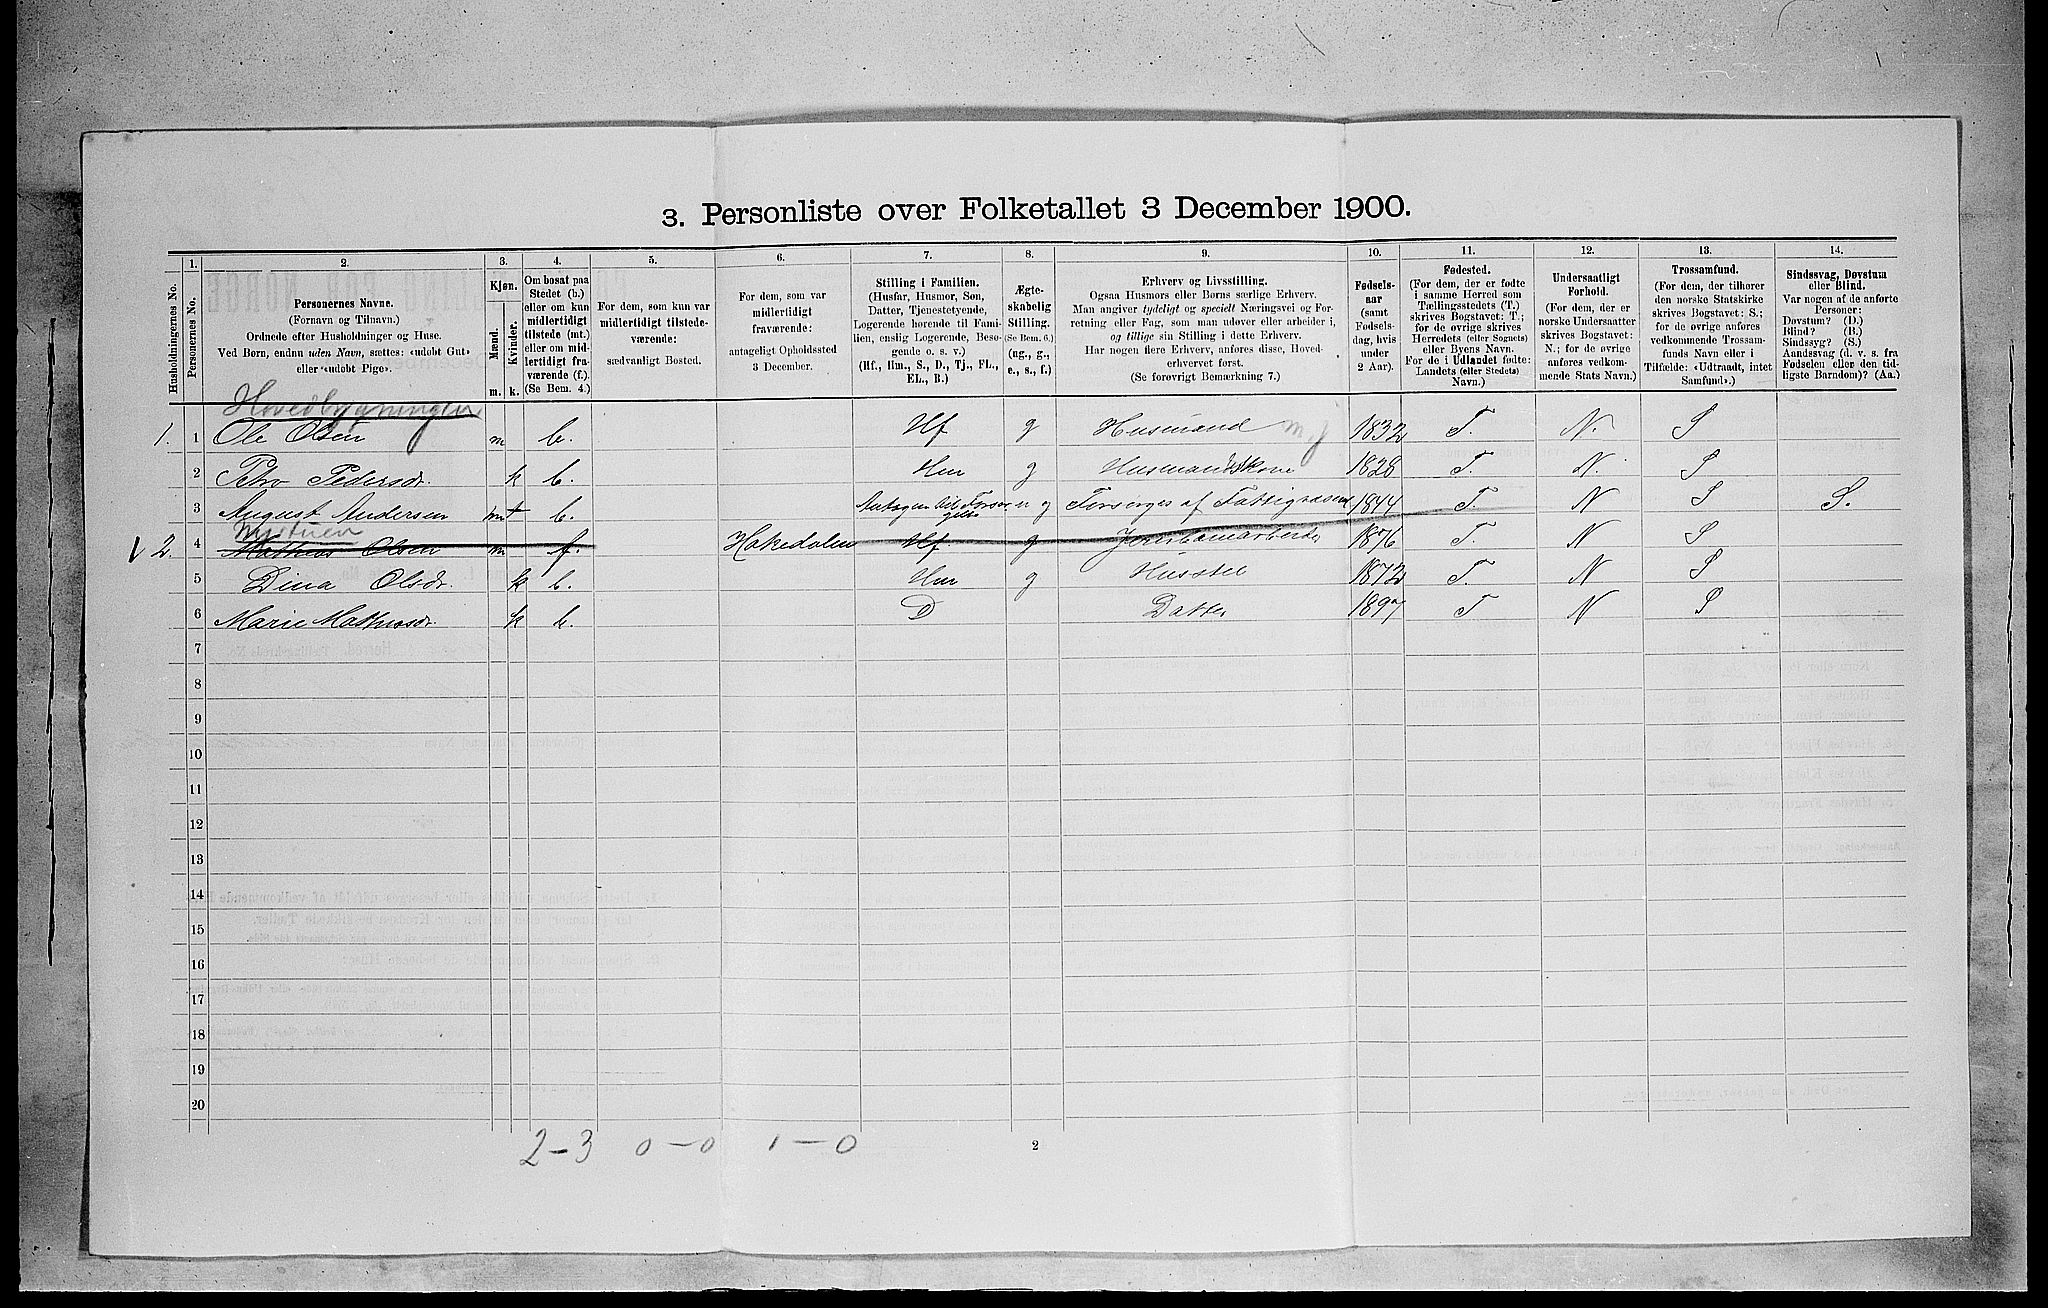 3. Personliste over Folketallet 3 December 1900.
Husholdningernes No.
1.
Personernes No.
2.
Personernes Navne.
(Fornavn og Tilnavn.)
Ordnede efter Husholdninger og Huse.
Ved Børn, endnu uden Navn, sættes: «udøbt Gut»
eller «udøbt Pige».
3.
Kjøn.
Mænd.
Kvinder.
m. k.
4.
Om bosat paa
Stedet (b.)
eller om kun
midlertidigt
tilstede (mt.)
eller om mid-
lertidigt fra-
værende (f.).
(Se Bem. 4.)
5.
For dem, som kun var
midlertidigt tilstede-
værende:
sædvanligt Bosted.
6.
For dem, som var
midlertidigt
fraværende:
antageligt Opholdssted
3 December.
7.
Stilling i Familien.
(Husfar, Husmor, Søn,
Datter, Tjenestetyende,
Logerende hørende til Fami-
lien, enslig Logerende, Besø-
gende o. s. v.)
(Hf., Hm., S., D., Tj., FL.,
EL., B.)
8.
Ægte-
skabelig
Stilling.
(Se Bem. 6.)
(ug., g.,
e., s., f.)
9.
Erhverv og Livsstilling.
Ogsaa Husmors eller Børns særlige Erhverv.
Man angiver tydeligt og specielt Næringsvei og For-
retning eller Fag, som man udøver eller arbeider i,
og tillige sin Stilling i dette Erhverv.
Har nogen flere Erhverv, anføres disse, Hoved-
erhvervet først.
(Se forøvrigt Bemærkning 7.)
10.
Fødsels-
aar
(samt
Fødsels-
dag, hvis
under
2 Aar).
11.
Fødested.
(For dem, der er fødte
i samme Herred som
Tællingsstedets (T.)
skrives Bogstavet: T.;
for de øvrige skrives
Herredets (eller Sognets)
eller Byens Navn.
For de i Udlandet fødte:
Landets (eller Stedets)
Navn.)
12.
Undersaatligt
Forhold.
(For dem, der er
norske Undersaatter
skrives Bogstavet:
N.; for de øvrige
anføres vedkom-
mende Stats Navn.)
13.
Trossamfund.
(For dem, der tilhører
den norske Statskirke
skrives Bogstavet: S.;
for de øvrige anføres
vedkommende Trossam-
funds Navn eller i
Tilfælde: «Udtraadt, intet
Samfund».)
14.
Sindssvag, Døvstum
eller Blind.
Var nogen af de anførte
Personer:
Døvstum? (D.)
Blind? (B.)
Sindssyg? (S.)
Aandssvag (d. v. s. fra
Fødselen eller den tid-
ligste Barndom)? (Aa.)
Hovedbygningen
1. 1 Ole Olsen m b. Hf g Husmand m j 1832 T. N. S
2 Petro Pedersdr. k b. Hm g Husmandskone 1828 T. N. S
3 August Andersen m b. Forsørges af Fattigvæsenet 1844 T. N S S.
Nystuen
2. 4 Mathias Olsen m f. Hakedalen Hf g Jernbanearbeider 1876 T. N S
5 Dina Olsdr. k b. Hm g Husstel 1872 T. N S
6 Marie Mathiasdr. k b. D Datter 1897 T N S
7
8
9
10
11
12
13
14
15
16
17
18
19
20
2-3 0-0 1-0
2